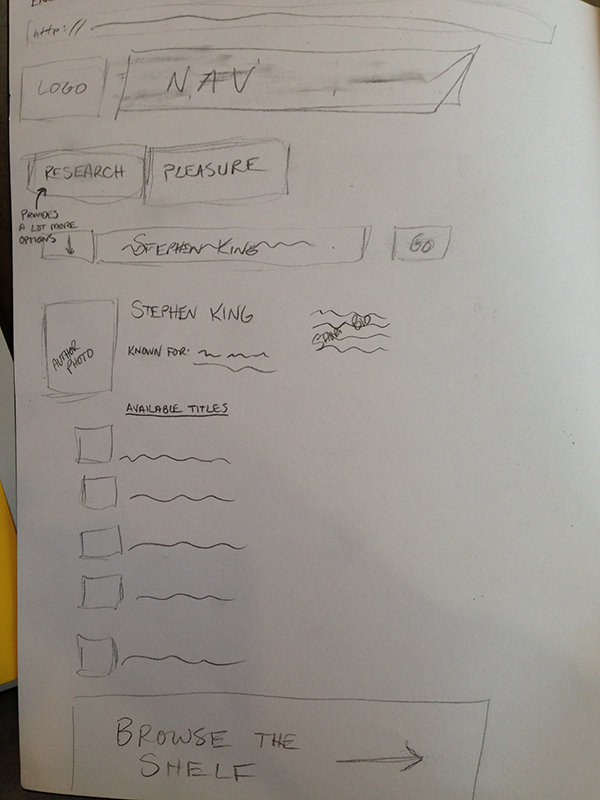 http://
LOGO
NAV
RESEARCH
PLEASURE
PROVIDES
A LOT MORE
OPTIONS
STEPHEN KING
GO
AUTHOR
PHOTO
STEPHEN KING
KNOWN FOR:
BIO
AVAILABLE TITLES
BROWSE THE
SHELF